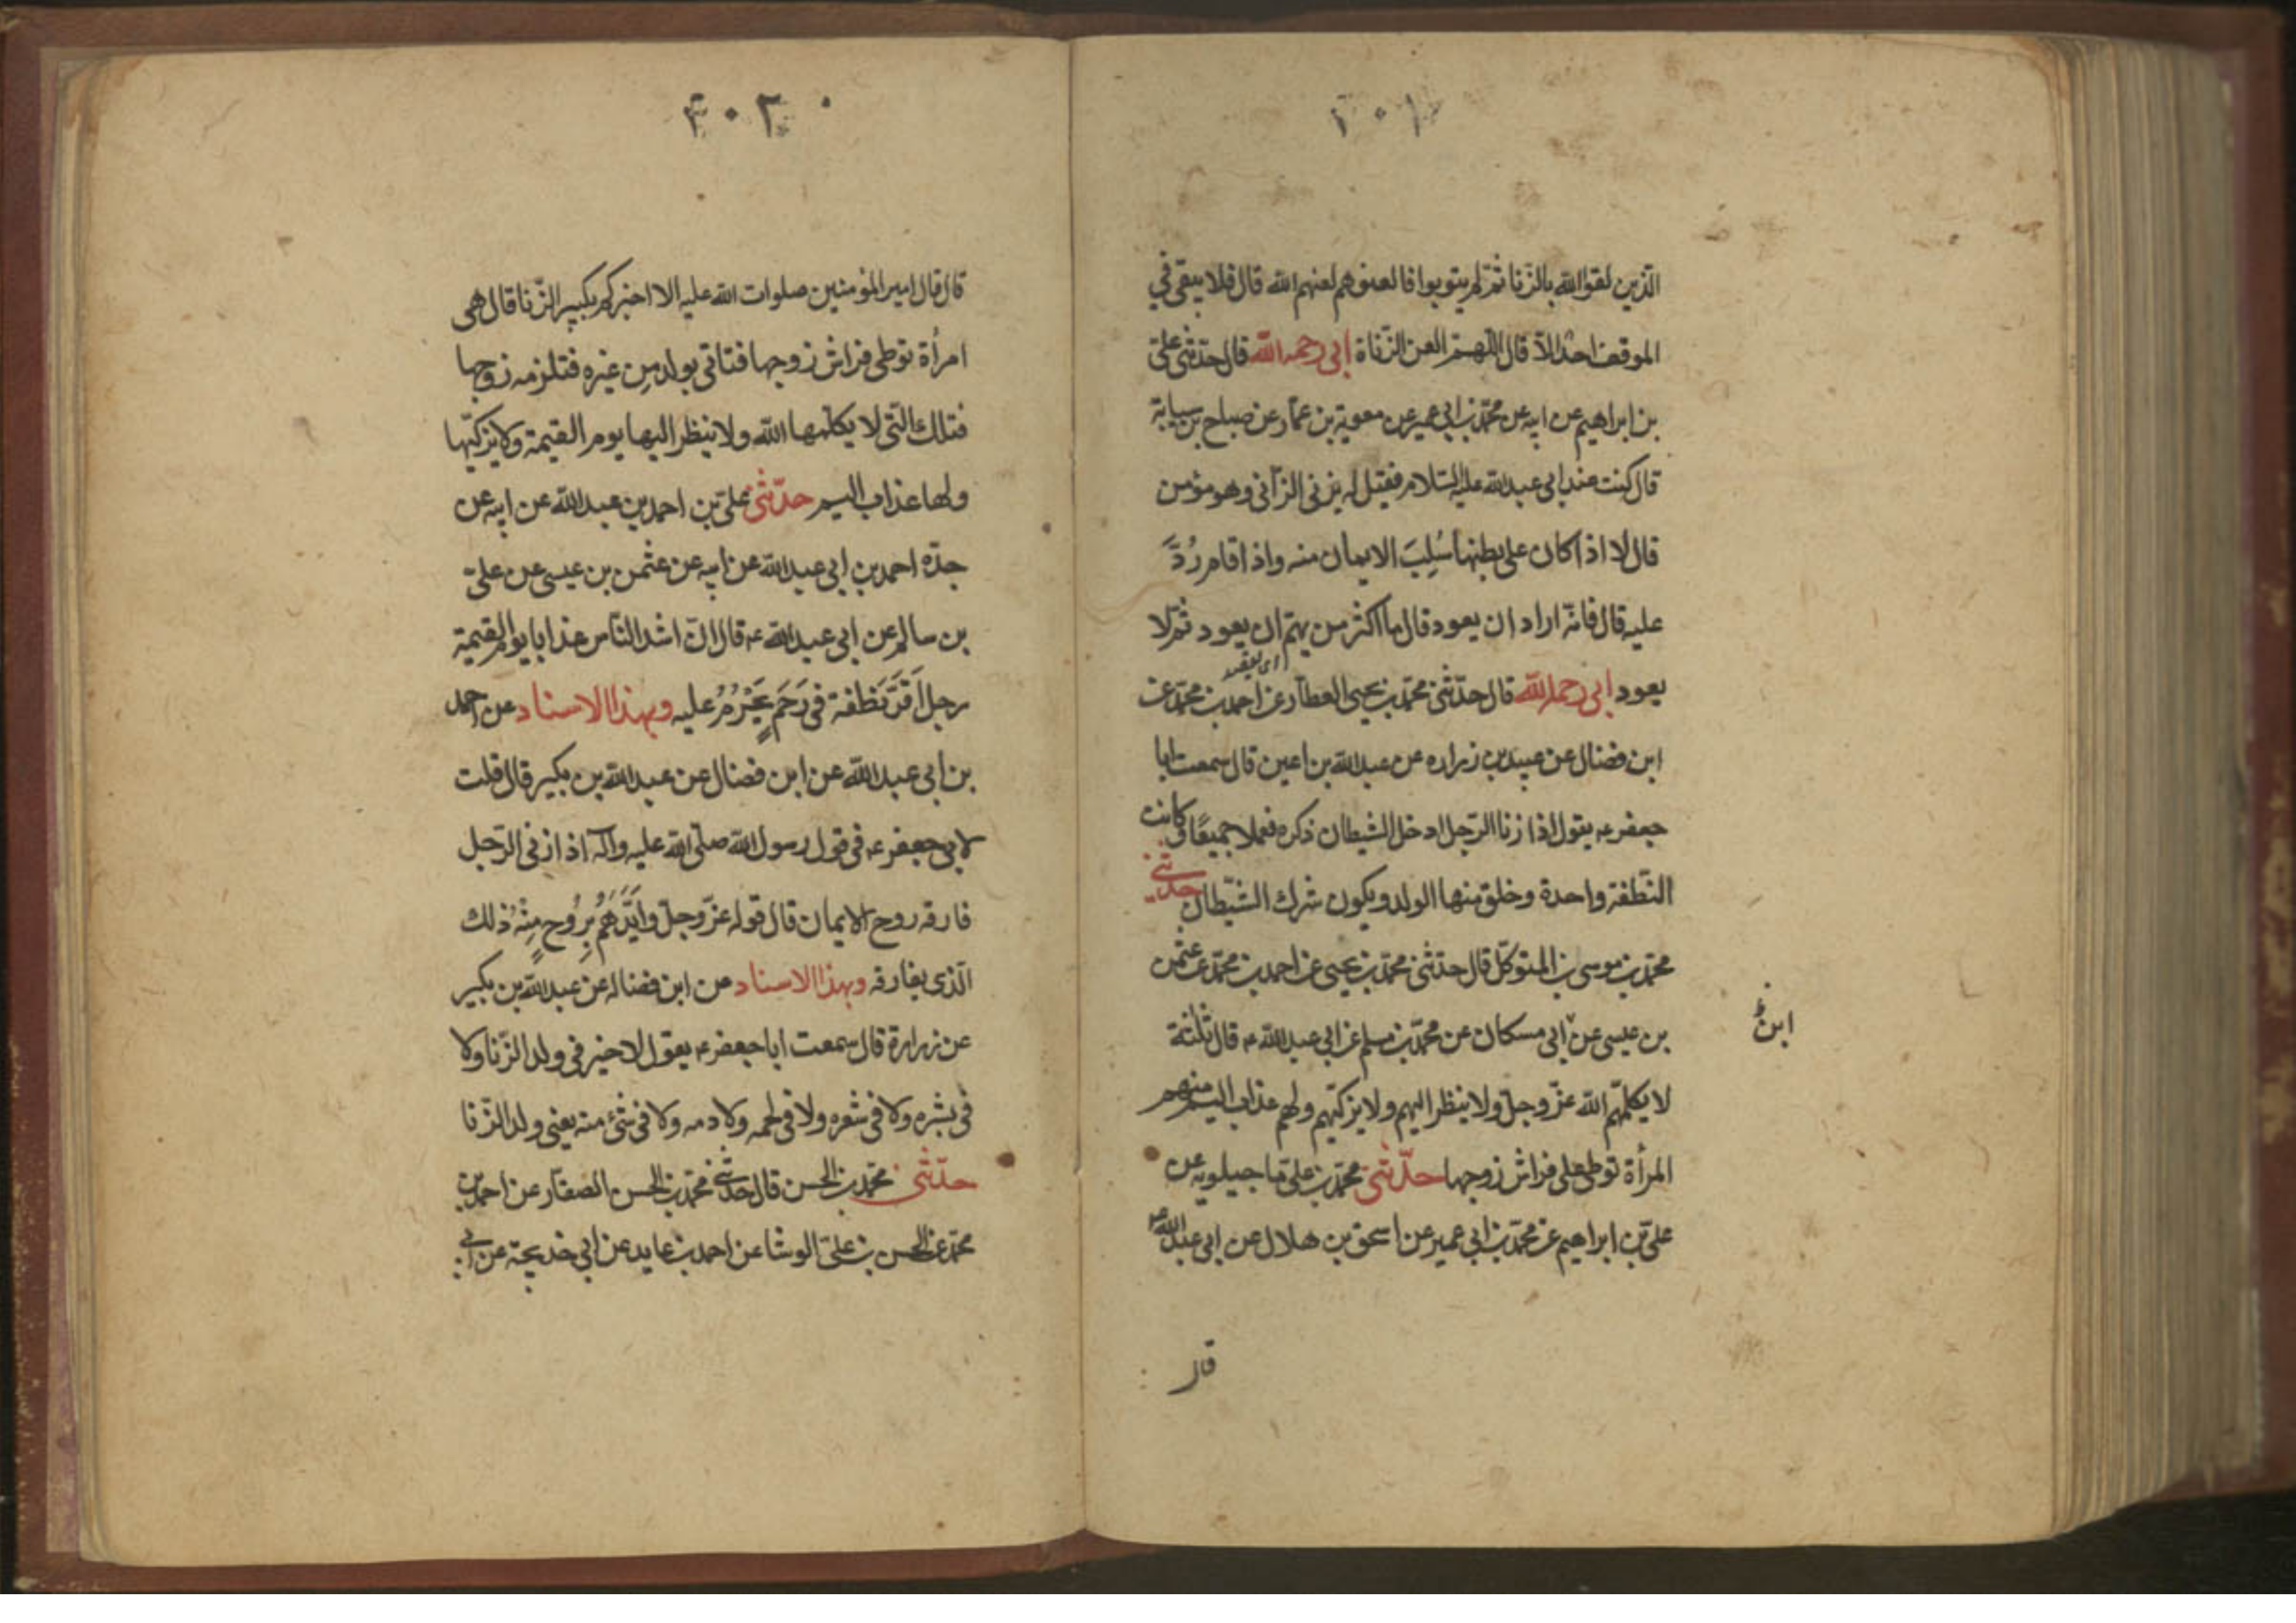 الذين لقوا الله بالزنا ثم لم يتوبوا فالعنوهم لعنهم الله قال فلا يبقى في
الموقف احد الا قال اللهم العن الزناة ابى رحمه الله قال حدثنى على
بن ابراهيم عن ابيه عن محمد بن ابى عمير عن معوية بن عمار عن صباح بن سيابة
قال كنت عند ابى عبد الله عليه السلام فقيل له يزنى الزانى وهو مؤمن
قال لا اذا كان على بطنها سُلِبَ الايمان منه واذا قام رُدَّ
عليه قال فانه اراد ان يعود قال ما اكثر من يهم ان يعود ثم لا
يعود ابى رحمه الله قال حدثنى محمد بن يحيى العطار عن احمد بن محمد عن
ابن فضال عن عبيد بن زراره عن عبد الله بن اعين قال سمعت ابا
جعفر عه يقول اذا زنا الرجل ادخل الشيطان ذكره فعملا جميعًا وكانت
النطفة واحدة وخلق منها الولد ويكون شرك الشيطان حدثنى
محمد بن موسى بن المتوكل قال حدثنى محمد بن يحيى عن احمد بن محمد عن عثمن
بن عيسى عن ابى مسكان عن محمد بن مسلم عن ابى عبد الله عه قال ثلثة
ابن
لا يكلمهم الله عز وجل ولا ينظر اليهم ولا يزكيهم ولهم عذاب اليم منهم
المرأة توطى على فراش زوجها حدثنى محمد بن على ماجيلويه عن
على بن ابراهيم عن محمد بن ابى عمير عن اسحق بن هلال عن ابى عبد الله عه
قال
٣٠٢
قال قال امير المؤمنين صلوات الله عليه الا اخبركم بكبير الزنا قال هى
امرأة توطى فراش زوجها فتاتى بولد من غيره فتلزمه زوجها
فتلك التى لا يكلمها الله ولا ينظر اليها يوم القيمة ولا يزكيها
ولها عذاب اليم حدثنى على بن احمد بن عبد الله عن ابيه عن
جده احمد بن ابى عبد الله عن ابيه عن عثمن بن عيسى عن على
بن سالم عن ابى عبد الله عه قال ان اشد الناس عذابا يوم القيمة
رجل اَقَرَّ نطفة فى رَحَمٍ يَحْرُمُ عليه وبهذا الاسناد عن احمد
بن ابى عبد الله عن ابن فضال عن عبد الله بن بكير قال قلت
لابى جعفر عه فى قول رسول الله صلى الله عليه واله اذا زنى الرجل
فارقه روح الايمان قال قوله عز وجل وايَّدَهُم بِرُوحٍ مِنْهُ ذلك
الذى يفارقه وبهذا الاسناد عن ابن فضال عن عبد الله بن بكير
عن زرارة قال سمعت ابا جعفر عه يقول لا خير فى ولد الزنا ولا
فى بشره ولا فى شعره ولا فى لحمه ولا دمه ولا فى شئ منه يعنى ولد الزنا
حدثنى محمد بن الحسن قال حدثنى محمد بن الحسن الصفار عن احمد بن
محمد عن الحسن بن على الوشا عن احمد بن عايد عن ابى خديجة عن ابى